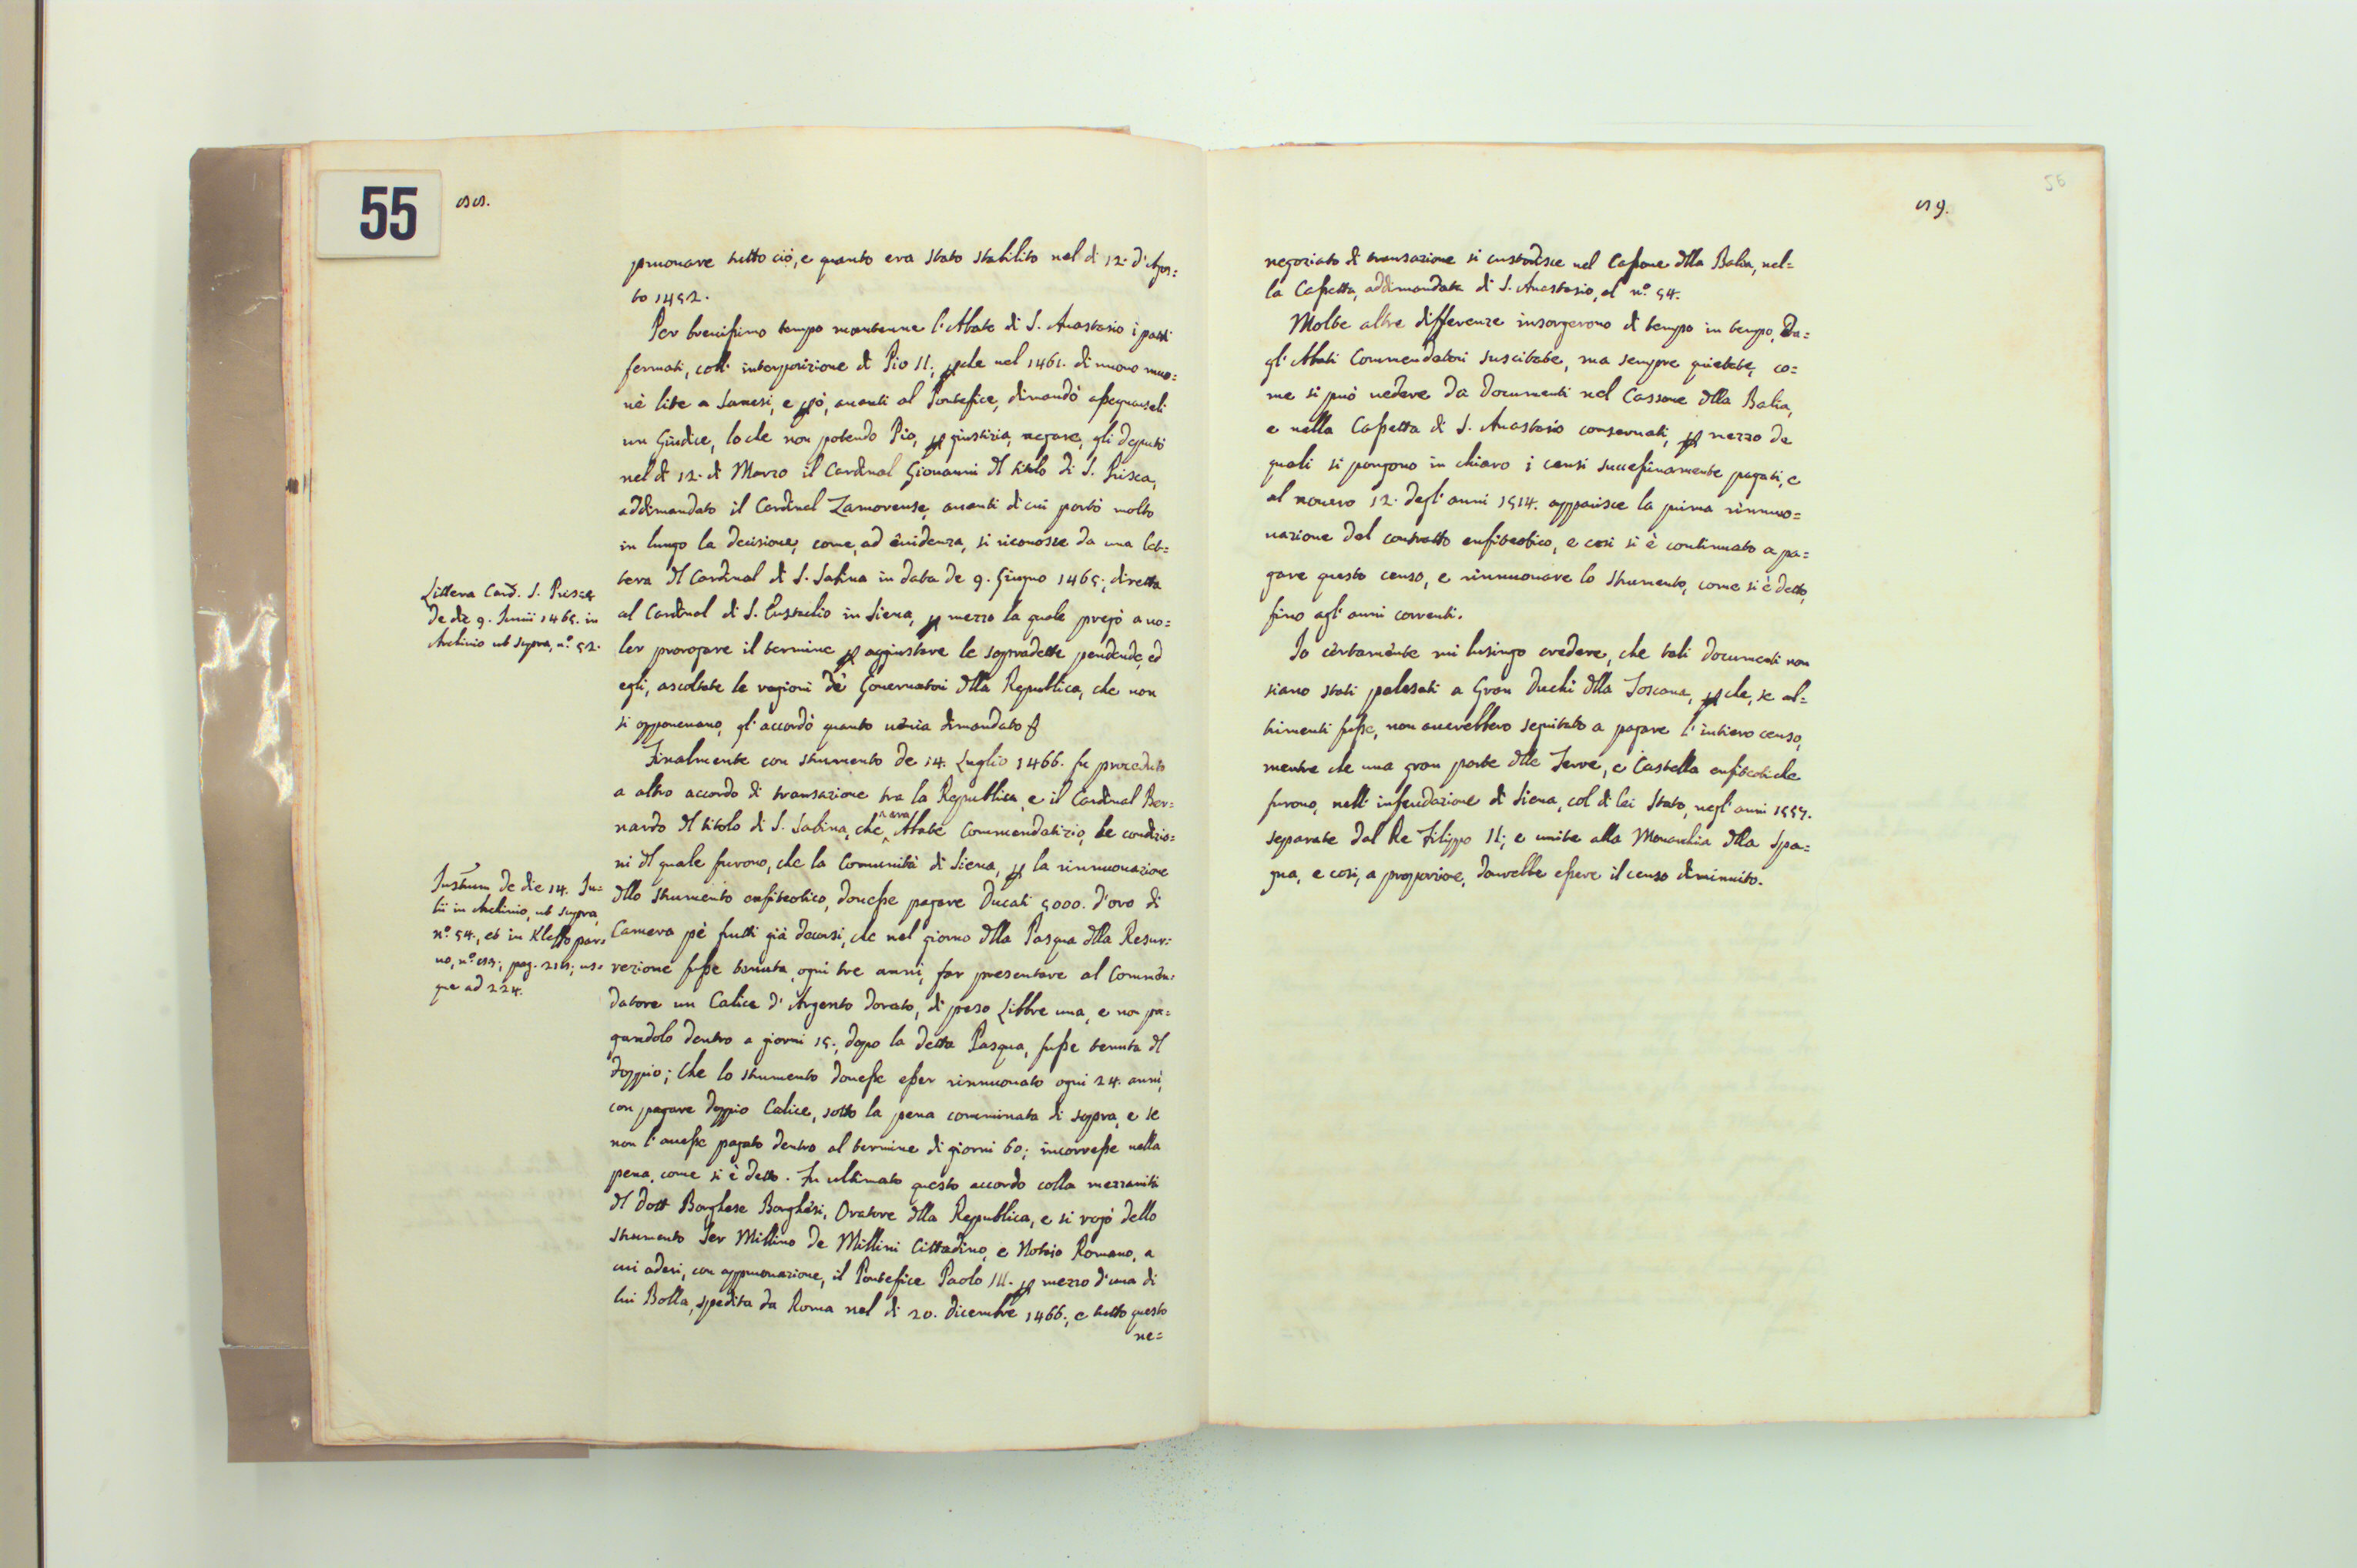 55
58.
pruouare tutto ciò, e quanto era stato stabilito nel dì 12. d'Agos=
to 1452.
Per breuissimo tempo mantenne l'Abate di S. Anastasio i patti
fermati, coll' interposizione di Pio II., p̱che nel 1461. di nuouo muo=
uè lite a Sanesi, e p̱ò, auanti al Pontefice, dimandò assegnarseli
un Giudice, loche non potendo Pio, p̱ giustizia, negare, gli deputò
nel dì 12. di Marzo il Cardinal Giouanni dl titolo di S. Prisca,
addimandato il Cardinal Zamorense, auanti di cui portò molto
in lungo la decisione, come, ad euidenza, si riconosce da una let=
tera dl Cardinal di S. Sabina in data de 9. Giugno 1465., diretta
al Cardinal di S. Eustachio in Siena, p̱ mezzo la quale pregò a uo=
ler prorogare il termine p̱ aggiustare le sopradette pendenze, ed
egli, ascoltate le ragioni de' Gouernatori dlla Republica, che non
si opponeuano, gl' accordò quanto uenia dimandato
Finalmente con strumento de 14. Luglio 1466. fu proceduto
a altro accordo di transazione tra la Republica, e il Cardinal Ber=
nardo dl titolo di S. Sabina, che era Abate Commendatizio, le condizio=
ni dl quale furono, che la Comunità di Siena, p̱ la rinnuouazione
dllo strumento enfiteotico, douesse pagare Ducati 5000. d'oro di
Camera pè frutti già decorsi, che nel giorno dlla Pasqua dlla Resur=
rezione fusse tenuta, ogni tre anni, far presentare al Commen=
datore un Calice d'Argento dorato, di peso Libbre una, e non pa=
gandolo dentro a giorni 15., dopo la detta Pasqua, fusse tenuta dl
doppio; Che lo strumento douesse esser rinnuouato ogni 24. anni,
con pagare doppio Calice, sotto la pena comminata di sopra, e se
non l'auesse pagato dentro al termine di giorni 60., incorresse nella
pena, come si è detto. Fu ultimato questo accordo colla mezzanità
dl Dott Borghese Borghesi, Oratore dlla Republica, e si rogò dello
strumento Ser Millino de Millini Cittadino, e Notaio Romano, a
cui aderì, con appruouazione, il Pontefice Paolo III. p̱ mezzo d'una di
lui Bolla, spedita da Roma nel dì 20. dicembre 1466., e tutto questo
ne=
Littera Card. S. Priscæ
de die 9. Junii 1465. in
Archiuio ut supra, n.º 52.
Instrum de die 14. Ju=
lii in Archiuio, ut supra,
n.º 54., et in Kleffo par=
uo, pag. 218., us=
que ad 224.
56
59.
negoziato di transazione si custodisce nel Cassone dlla Balìa, nel=
la Cassetta, addimandata di S. Anastasio, al n.º 54.
Molte altre differenze insorgerono di tempo in tempo, da=
gl' Abati Commendatori suscitate, ma sempre quietate, co=
me si può uedere da documenti nel Cassone dlla Balìa,
e nella Cassetta di S. Anastasio conseruati, p̱ mezzo de
quali si pongono in chiaro i censi successiuamente pagati, e
al nouero 12. degl' anni 1514. apparisce la prima rinnuo=
uazione del contratto enfiteotico, e così si è continuato a pa=
gare questo censo, e rinnuouare lo strumento, come si è detto,
fino agl' anni correnti.
Io certamente mi lusingo credere, che tali documenti non
siano stati palesati a Gran Duchi dlla Toscana, p̱che, se al=
trimenti fusse, non auerebbero seguitato a pagare l'intiero censo,
mentre che una gran parte dlle Terre, e Castella enfiteotiche
furono, nell' infeudazione di Siena, col di lei Stato, negl' anni 1557.
separate dal Re Filippo II., e unite alla Monarchia dlla Spa=
gna, e così, a proporzione, dourebbe essere il censo diminuito.